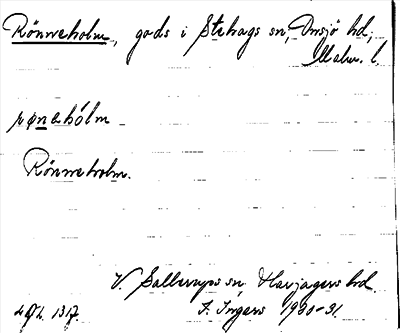 Rönneholm, gods i Stehags sn, Onsjö hd,
Malm. l.
rønehólm
Rönneholm.
V. Sallerups sn, Harjagers hd.
F. Ingers 1930-31.
1317.